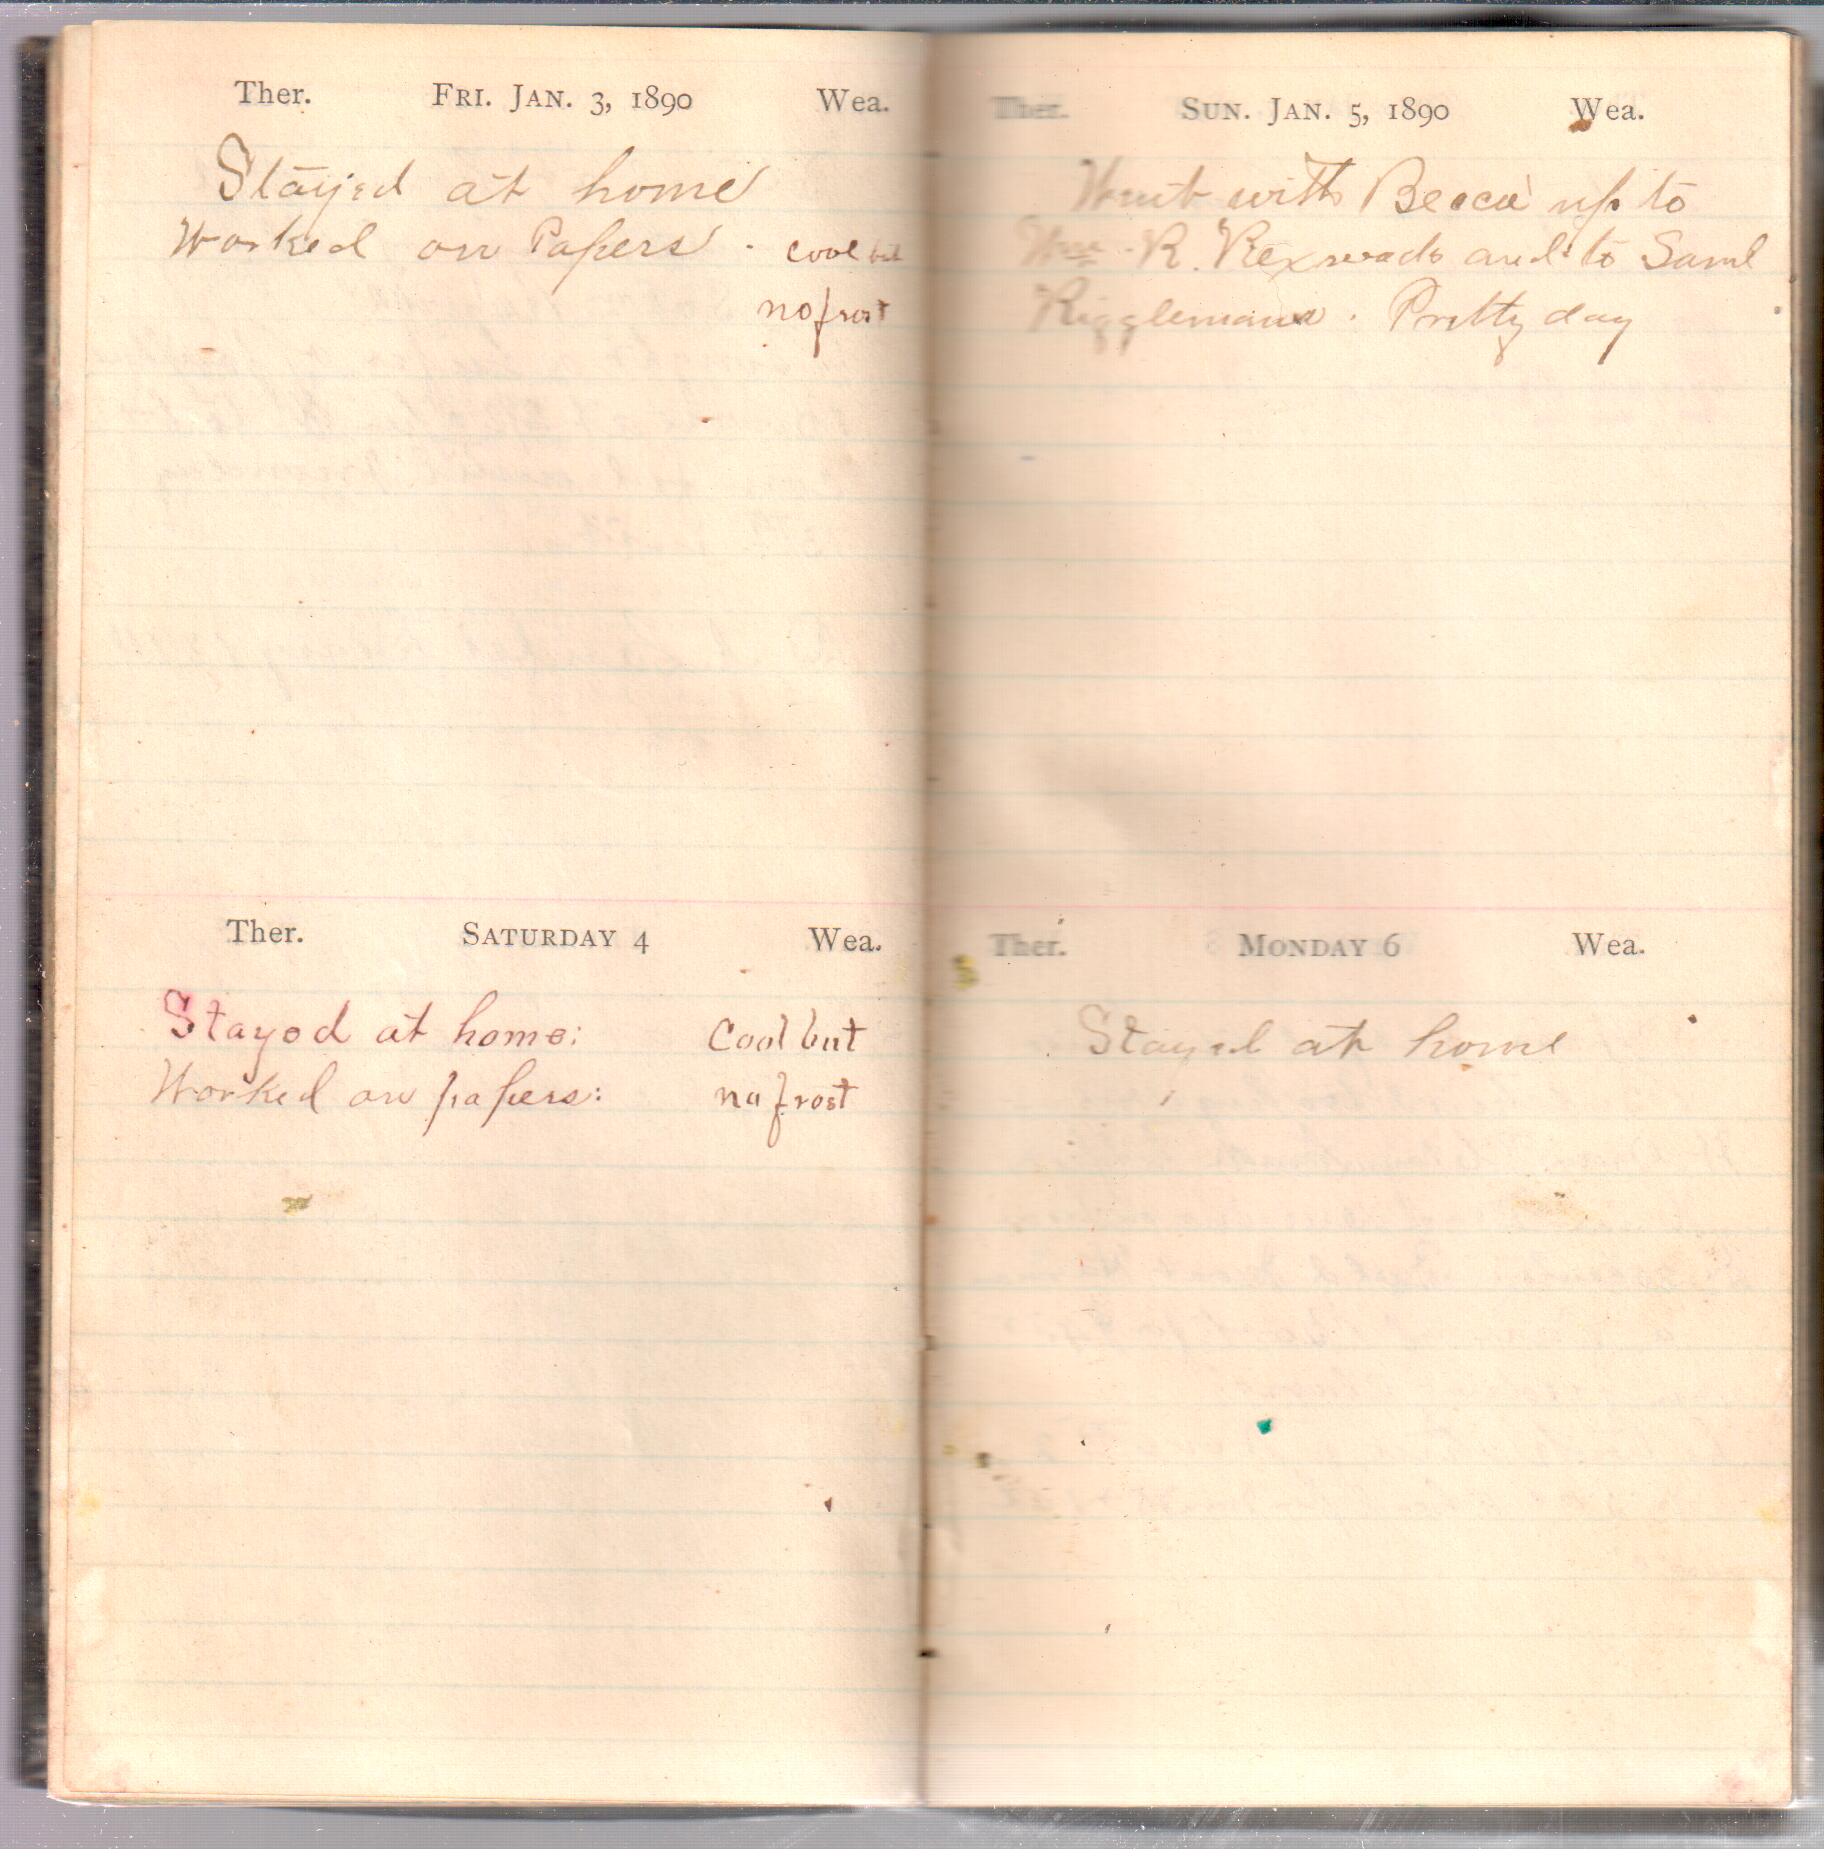 Ther. FRI. JAN. 3, 1890 Wea.
Stayed at home
Worked on Papers. cool but
no frost
Ther. SATURDAY 4 Wea.
Stayed at home: Cool but
Worked on papers: no frost
Ther. SUN. JAN. 5, 1890 Wea.
Went with Becca up to
Wm. R. Rexroads and to Saml
Rigglemans. Pretty day
Ther. MONDAY 6 Wea.
Stayed at home